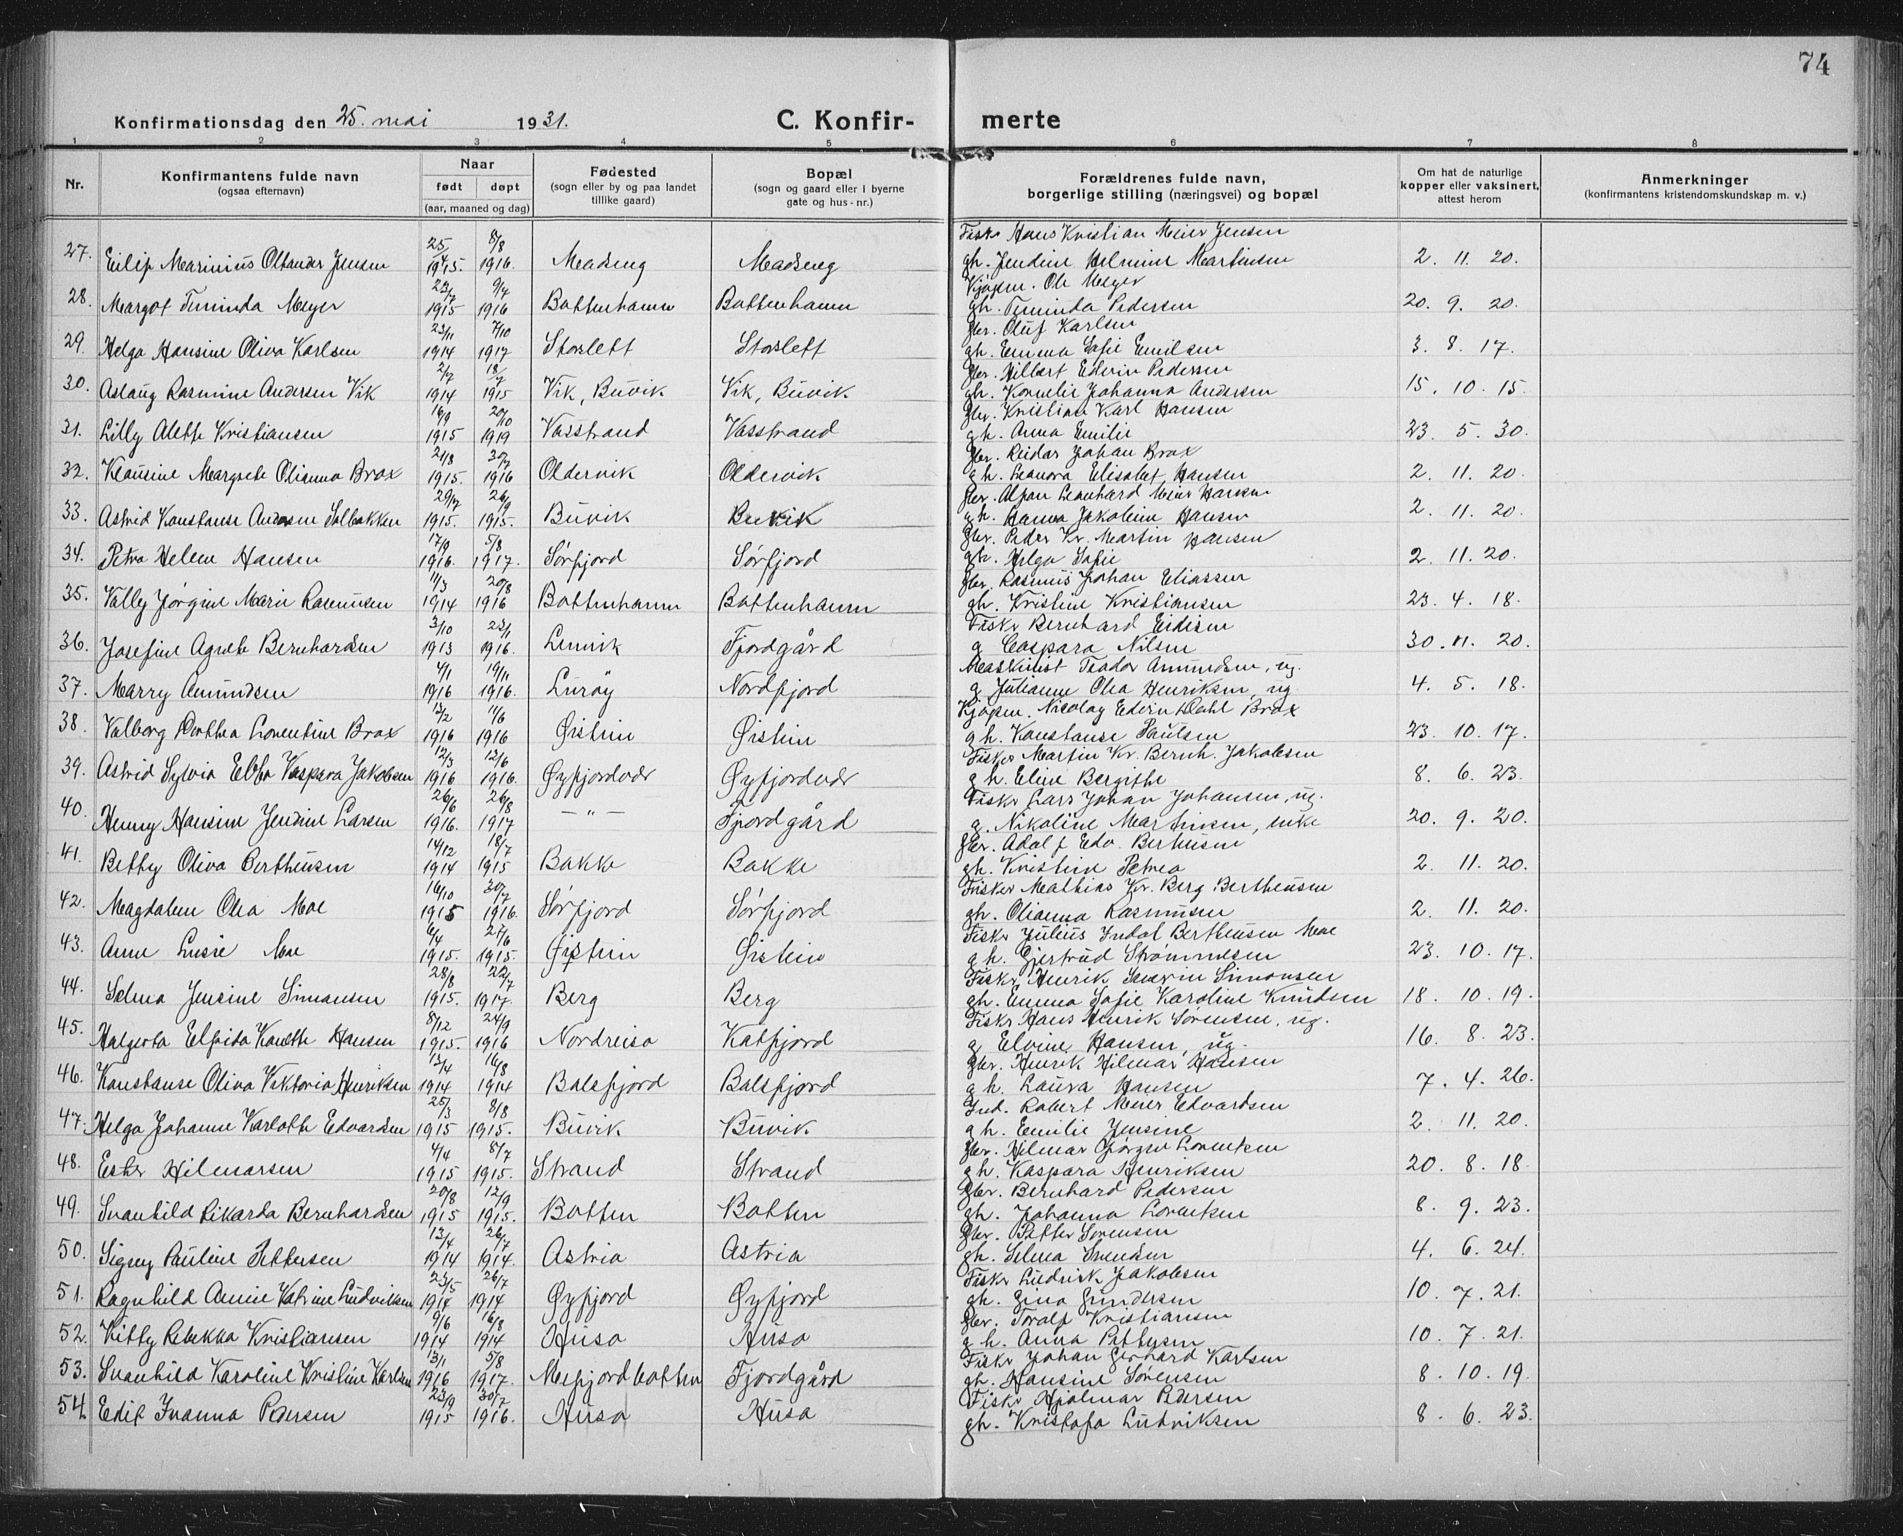 74
Konfirmationsdag den 25. mai 1931. C. Konfir- merte
1 2 3 4 5 6 7 8
Nr. Konfirmantens fulde navn (ogsaa efternavn) Naar født døpt (aar, maaned og dag) Fødested (sogn eller by og paa landet tillike gaard) Bopæl (sogn og gaard eller i byerne gate og hus-nr.) Forældrenes fulde navn, borgerlige stilling (næringsvei) og bopæl Om hat de naturlige kopper eller vaksinert, attest herom Anmerkninger (konfirmantens kristendomskundskap m. v.)
Fisker Hans Kristian Meier Jensen
27. Eilif Marinius Oltander Jensen 1915. 8/8 1916. Madseng Madseng gh. Jendine Helmine Martinsen 2. 11. 20.
Kjøpm. Ole Meyer
28. Margot Teminda Meyer 23/7 1915 9/4 1916 Bottenhamn Bottenhamn gh. Teminda Pedersen 20. 9. 20.
gbr. Oluf Karlsen
29. Helga Hansine Oliva Karlsen 23/11 1914 7/10 1917 Storslett Storslett gh. Emma Sofie Emilsen 3. 8. 17.
gbr. Hilbert Edvin Pedersen
30. Aslaug Rasmine Andersen Vik 2/7 1914 18/7 1915 Vik, Buvik Vik, Buvik gh. Kornelie Johanna Andersen 15. 10. 15.
gbr. Kristian Karl Hansen
31. Lilly Alette Kristiansen 16/9 1915 20/10 1919 Vasstrand Vasstrand gh. Anna Emilie 23. 5. 30.
gbr. Reidar Johan Brox
32. Klausine Margrete Olianna Brox 21/8 1915. 30/7 1916 Oldervik Oldervik gh. Leonora Elisabet Hansen 2. 11. 20.
gbr. Alfon Leonhard Meier Hansen
33. Astrid Konstanse Andersen Solbakken 29/12 1915. 26/9 1915. Buvik Buvik gh. Hanna Jakobine Hansen 2. 11. 20.
gbr. Peder Kr. Martin Hansen
34. Petra Helene Hansen 17/9 1916. 5/8 1917. Sørfjord Sørfjord gh. Helga Sofie 2. 11. 20.
gbr. Rasmus Johan Eliassen
35. Vally Jørgine Marie Rasmussen 11/3 1914 20/8 1916 Bottenhamn Bottenhamn gh. Kristine Kristiansen 23. 4. 18.
Fisker Bernhard Eidissen
36. Josefine Agnete Bernhardsen 3/10 1913 23/1 1916. Lenvik Fjordgård g Caspara Nilsen 30. 11. 20.
Maskinist Teodor Amundsen, ug.
37. Marry Amundsen 4/1 1916 19/11 1916. Lurøy Nordfjord g Julianne Olea Henriksen, ug 4. 5. 18.
Kjøpm. Nicolay Edvin Dahl Brox
38. Valborg Dorthea Lorentine Brox 13/2 1916 11/6 1916 Øistein Øistein gh. Konstanse Paulsen 23. 10. 17.
Fisker Martin Kr. Bernh. Jakobsen
39. Astrid Sylvia Ebba Kaspara Jakobsen 12/3 1916 12/6 1916. Øyfjordvær Øyfjordvær gh. Eline Bergithe 8. 6. 23.
Fisker Lars Johan Johansen, ug.
40. Henny Hansine Jendine Larsen 26/6 1916. 26/8 1917 — " — Fjordgård g. Nikoline Martinsen, enke 20. 9. 20.
gbr. Adolf Edv. Berthusen
41. Betty Oliva Bertheusen 14/12 1914 18/7 1915 Bakke Bakke gh. Kristine Petrea 2. 11. 20.
Fisker Mathias Kr. Berg Bertheusen
42. Magdalene Olea Moe 16/10 1915 30/7 1916. Sørfjord Sørfjord gh. Olianna Rasmussen 2. 11. 20.
Fisker Julius Indal Bertheusen Moe
43. Anne Lusie Moe 6/4 1915. 27/6 1915. Øistein Øistein gh. Gjertrud Strømmesen 23. 10. 17.
Fisker Henrik Severin Simonsen
44. Selma Jensine Simonsen 28/8 1915. 22/7 1917. Berg Berg gh. Emma Sofie Karoline Knudsen 18. 10. 19.
Fisker Hans Henrik Sørensen, ug.
45. Halgerta Elfrida Hansen 8/12 1915. 24/9 1916 Nordreisa Katfjord g Elvine Hansen, ug. 16. 8. 23.
gbr. Henrik Hilmar Hansen
46. Konstanse Oliva Viktoria Henriksen 13/4 1914 16/8 1914 Balsfjord Balsfjord gh. Laura Hansen 7. 4. 26.
Ind. Robert Meier Edvardsen
47. Helga Johanne Karlotte Edvardsen 25/3 1915 8/8 1915. Buvik Buvik gh. Emilie Jensine 2. 11. 20.
gbr. Hilmar Jørgen Lorentsen
48. Ester Hilmarsen 4/4 1915 8/7 1915. Strand Strand gh. Kaspara Henriksen 20. 8. 18.
gbr. Bernhard Pedersen
49. Svanhild Rikarda Bernhardsen 20/8 1915 12/9 1915. Botten Botten gh. Johanna Lorentsen 8. 9. 23.
gbr. Petter Sørensen
50. Signy Pauline Pettersen 13/4 1914 26/7 1914. Astria Astria gh. Selma Svendsen 4. 6. 24.
Fisker Ludvik Jakobsen
51. Ragnhild Amine Katrine Ludviksen 23/5 1914 26/7 1914 Øyfjord Øyfjord gh. Gina Gundersen 10. 7. 21.
gbr. Toralf Kristiansen
52. Kitty Rebekka Kristiansen 9/6 1914 16/8 1914 Husø Husø gh. Anna Pettersen 10. 7. 21.
Fisker Johan Gerhard Karlsen
53. Svanhild Karoline Kristine Karlsen 13/1 1916 5/8 1917. Mefjordbotten Fjordgård gh. Hansine Sørensen 8. 10. 19.
Fisker Hjalmar Pedersen
54 Edit Ivanna Pedersen 23/9 1915 30/7 1916. Husø Husø gh. Kristofa Ludviksen 8. 6. 23.